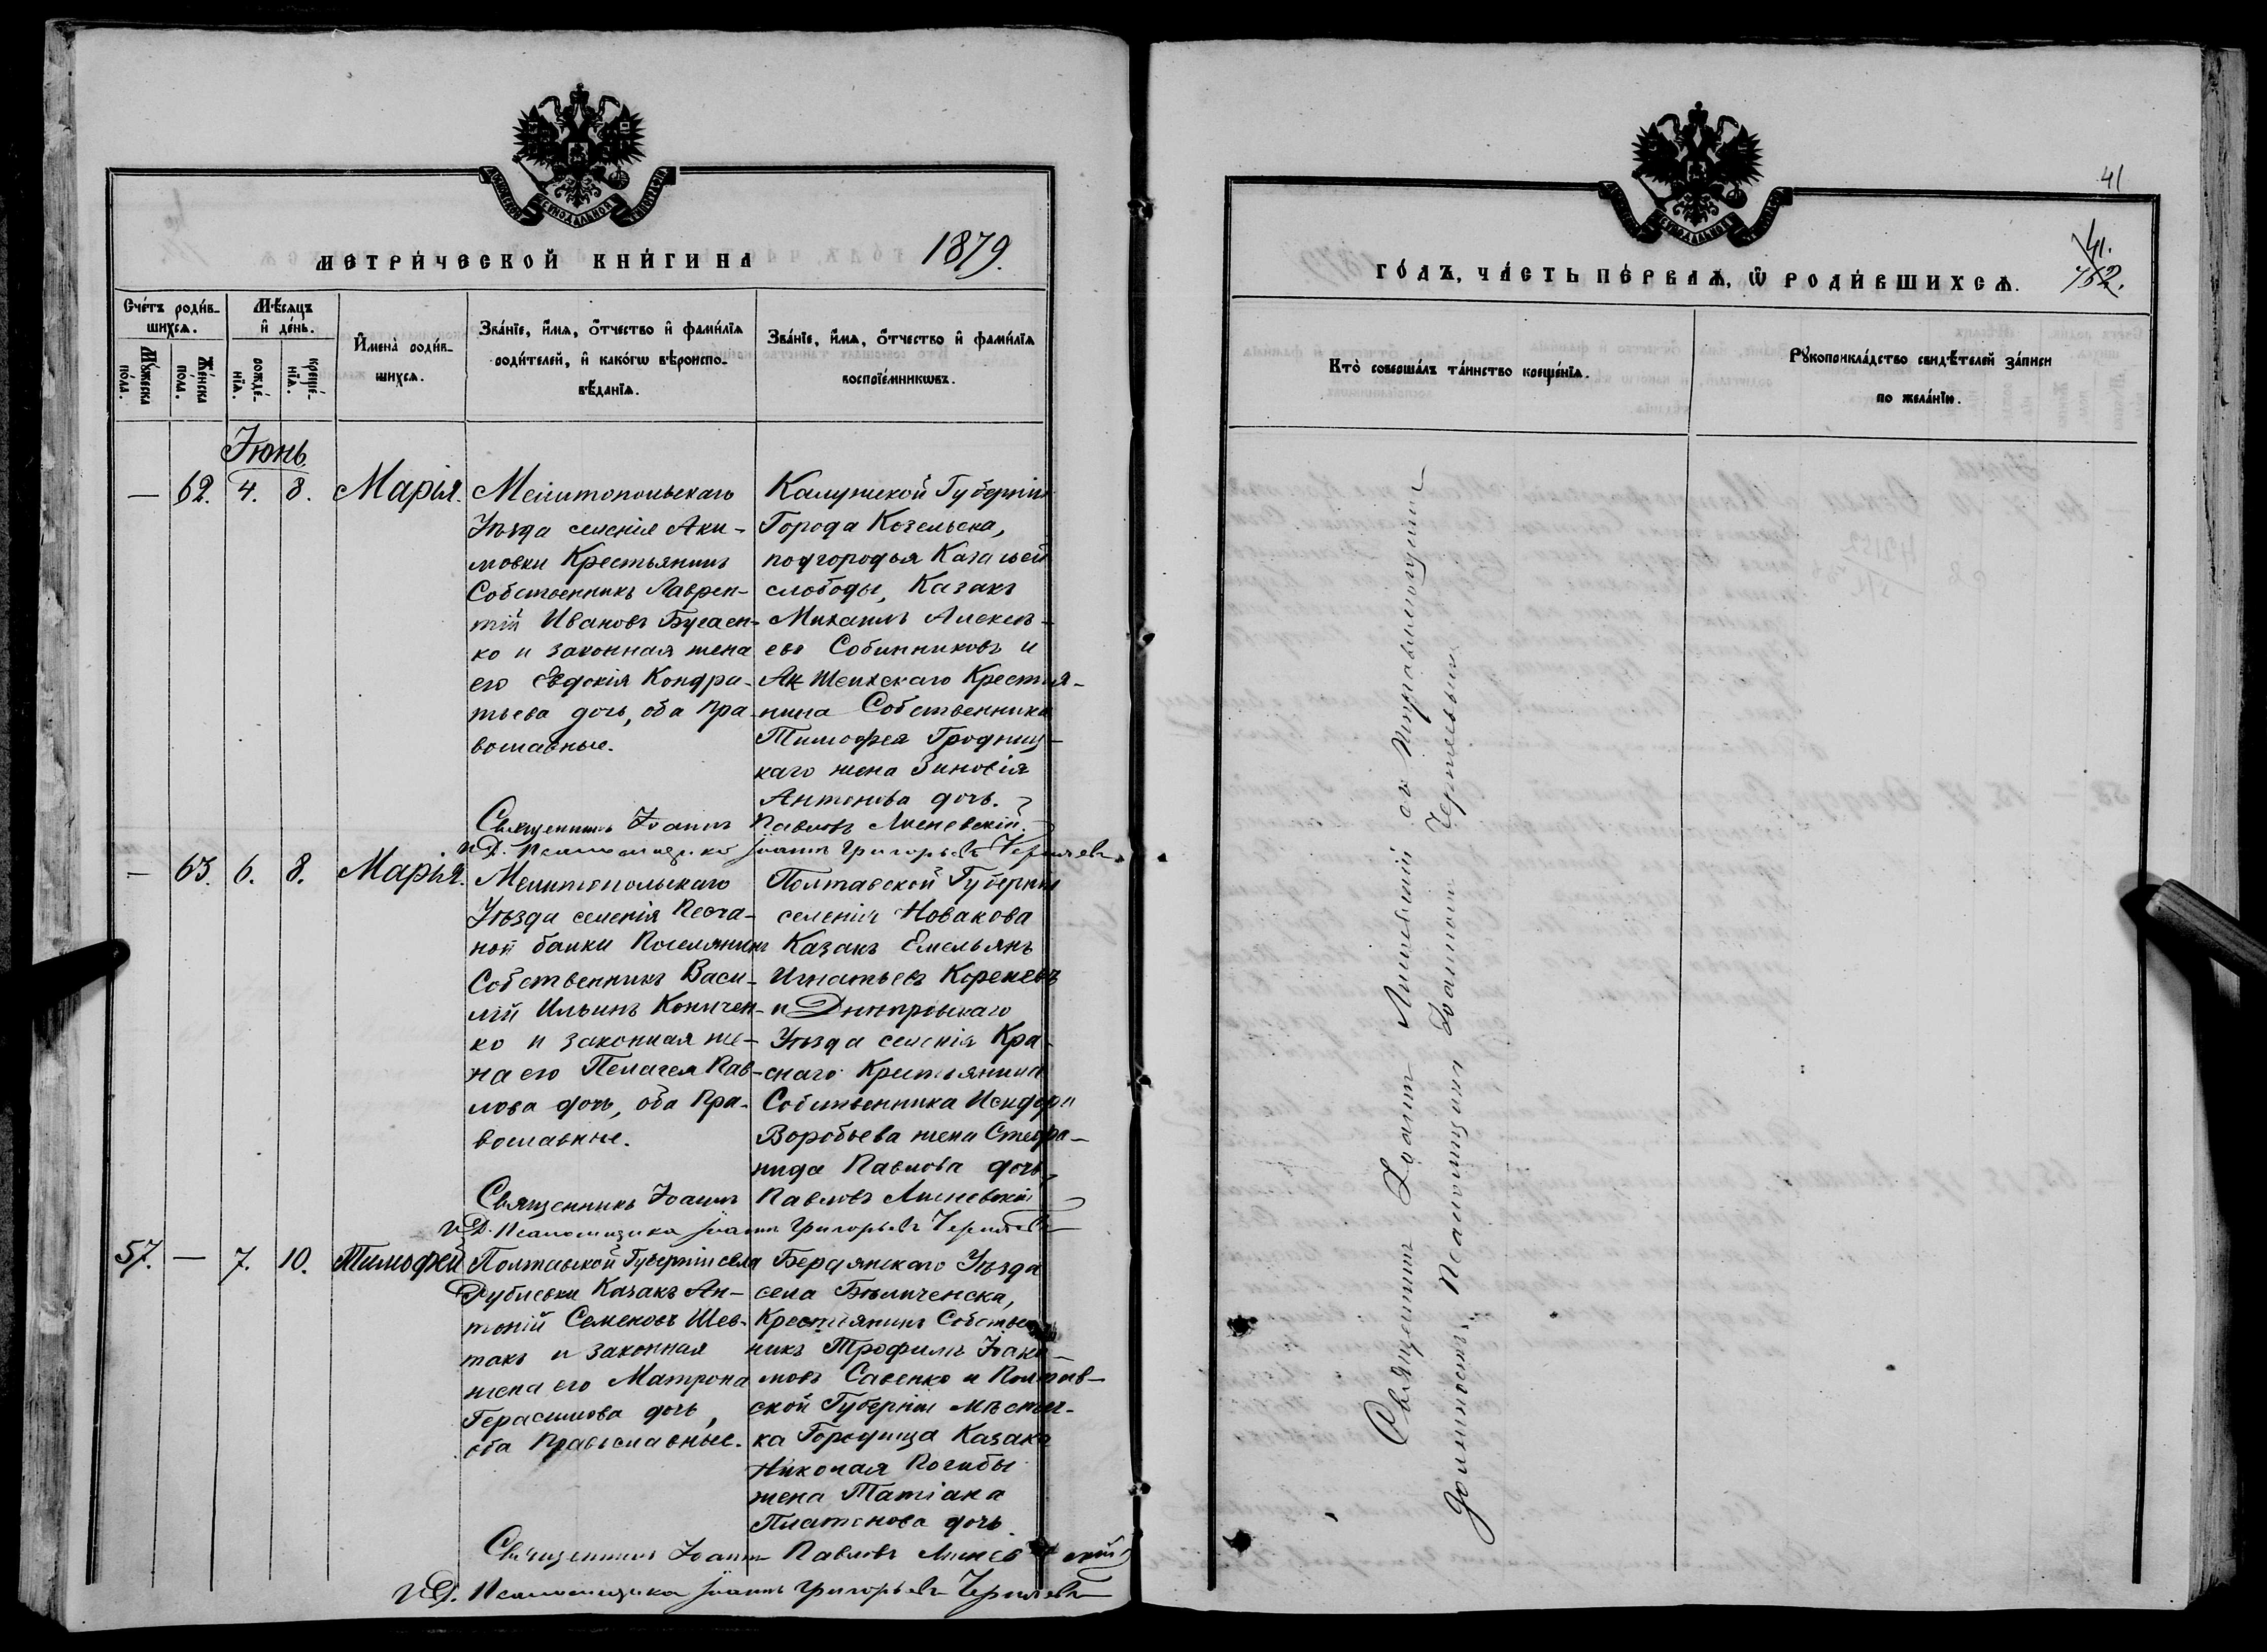 МЕТРИ́ЧЕСКОЙ КНИ́ГИ НА 1879.
Сче́тъ роди́в-
шихсѧ.
Мꙋ́жеска по́ла.
Же́нска по́ла.
Мѣ́сѧцъ
и҆ де́нь.
рожде́-
нїѧ.
креще́-
нїѧ.
И҆мена̀ роди́в-
шихсѧ.
Зва́нїе, и҆́мѧ, ѻ҆́тчество и҆ фами́лїѧ
роди́телей, и҆ како́гѡ вѣроиспо-
вѣ́данїѧ.
Зва́нїе, и҆́мѧ, ѻ҆́тчество и҆ фами́лїѧ
воспрїе́мникѡвъ.
Іюнь
— 62. 4. 8. Марія.
Мелитопольскаго
Уѣзда селенія Аки-
мовки Крестьянинъ
Собственникъ Лаврен-
тій Ивановъ Бугаен-
ко и законная жена
его Евдокія Кондра-
тьева дочь, оба Пра-
вославные.
Калужской Губерніи
Города Козельска,
подгородья Казачьей
слободы, Казакъ
Михаилъ Алексѣ-
евъ Собинниковъ и
Крестья-
нина Собственника
Тимофея Гродниц-
каго жена Зиновія
Антонова дочь.
Священникъ Іоаннъ Павловъ Лисневскій
И.Д. Псаломщика Іоаннъ Григорьевъ Чернявскій
— 63. 6. 8. Марія.
Мелитопольскаго
Уѣзда селенія Песча-
ной балки Поселянинъ
Собственникъ Васи-
лій Ильинъ Коничен-
ко и законная же-
на его Пелагея Пав-
лова дочь, оба Пра-
вославные.
Полтавской Губерніи
селенія Новакова
Казакъ Емельянъ
Игнатьевъ Кореневъ
и Днѣпровскаго
Уѣзда селенія Кра-
снаго Крестьянина
Собственника Исидора
Воробьева жена Стефа-
нида Павлова дочь
Священникъ Іоаннъ Павловъ Лисневскій
И.Д. Псаломщика Іоаннъ Григорьевъ Чернявскій
57. — 7. 10. Тимофей
Полтавской Губерніи села
Рублевки Казакъ Ан-
тоній Семеновъ Шев-
такъ и законная
жена его Матрона
Герасимова дочь,
оба Православные.
Бердянскаго Уѣзда
села Бѣличенска,
Крестьянинъ Собствен-
никъ Трофимъ Іоаки-
мовъ Савенко и Полтав-
ской Губерніи мѣстеч-
ка Городища Казака
Николая Погибы
жена Татіана
Платонова дочь.
Священникъ Іоаннъ Павловъ Лисневскій
И.Д. Псаломщика Іоаннъ Григорьевъ Чернявскій
41
41.
752.
ГО́ДЪ, ЧА́СТЬ ПЕ́РВАѦ, Ѡ҆ РОДИ́ВШИХСѦ.
Кто̀ соверша́лъ та́инство креще́нїѧ.
Рꙋкоприкла́дство свидѣ́телей за́писи
по жела́нїю.
Священникъ Іоаннъ Лисневскій съ Исправляющимъ
должность Псаломщика Іоанномъ Чернявскимъ